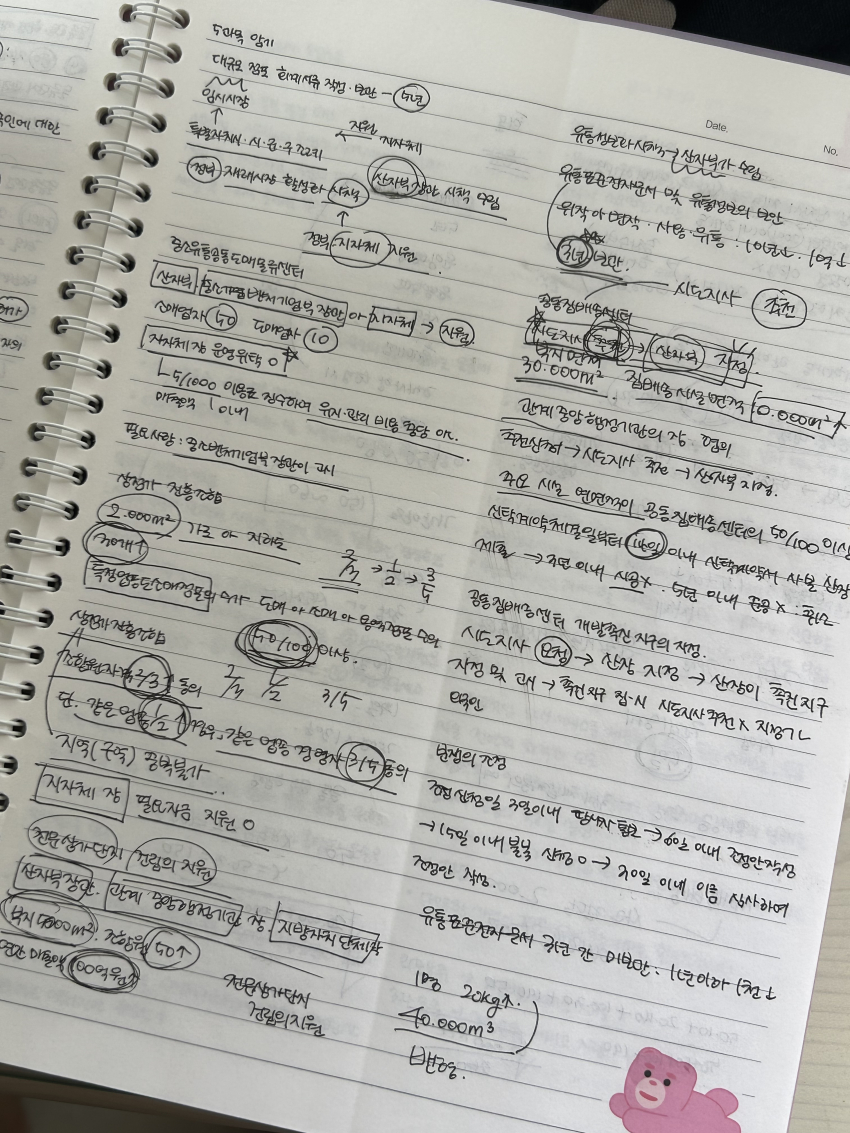 5과목 암기
대규모 점포 회계서류 작성·보관 - 5년
임시시장
↑
특별자치시·시·군·구 조례
지원 지자체
정부 재래시장 활성화 시책
산자부 장관 시책 수립
↑
정부 지자체 지원
중소유통공동도매물류센터
산자부 중소기업벤처기업부 장관 or 지자체 → 지원
소매업자 50 도매업자 10
지자체장 운영위탁 O
매출액 5/1000 이내 이용료 징수하여 유지·관리 비용 충당 ok.
필요사항 : 중소벤처기업부 장관이 고시
상점가 진흥조합
2.000m² 가로 or 지하도
30개↑
2/3 → 1/2 → 3/5
특정업종 도소매점포의 수가 도매 or 소매 or 용역점포 수의
50/100 이상.
상점가 진흥조합
조합원 자격 2/3↑ 동의 2/3 1/2 3/5
단. 같은 업종 1/2↑ 경우, 같은 업종 경영자 3/5 동의
지역(구역) 중복불가
지자체 장 필요자금 지원 O
전문상가단지 건립의 지원
산자부장관. 관계 중앙행정기관 장. 지방자치단체장
부지 5000m². 조합원 50↑
연간 매출액 100억원↑
전문상가단지
건립의 지원
Date.
No.
유통정보화 시책 → 산자부가 수립
유통표준전자문서 및 유통정보의 보안
위작 or 변작·사용·유통 : 10년↓·1억↓
3년 보관.
시도지사 추천
공동집배송센터
시도지사 추천 → 산자부 지정.
부지면적
30.000m² 집배송시설면적 10.000m²↑
관계 중앙행정기관의 장 협의
추천신청 → 시도지사 추천 → 산자부 지정.
주요 시설 연면적이 공동집배송센터의 50/100 이상
신탁계약체결일부터 14일 이내 신탁계약서 사본 산장
제출 → 3년 이내 시공x. 5년 이내 준공x : 취소
공동집배송센터 개발촉진 지구의 지정.
시도지사 요청 → 산장 지정 → 산장이 촉진지구
지정 및 고시 → 촉진지구 집·시 시도지사 추천 x 지정가능
외국인
분쟁의 조정
조정신청일 3일이내 당사자 통보 → 60일 이내 조정안작성
→ 15일 이내 불복 신청 O → 30일 이내 이를 심사하여
조정안 작성.
유통표준전자문서 3년 간 미보관 : 1년이하 1천↓
1명 20kg↑.
40.000m³